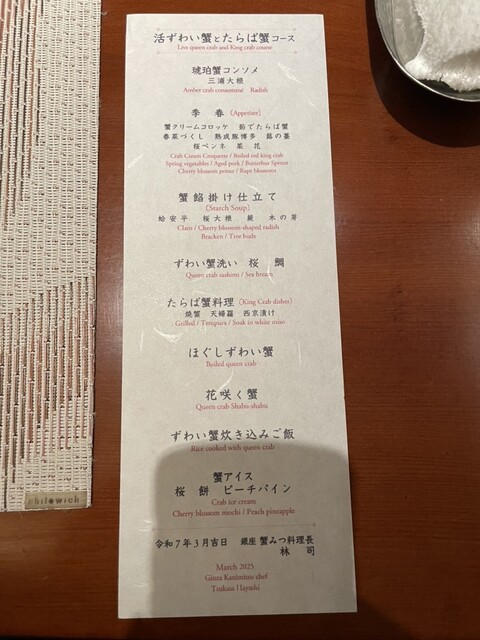 活ずわい蟹とたらば蟹コース
Live queen crab and King crab course
琥珀蟹コンソメ
三浦大根
Amber crab consommé Radish
季 春 (Appetizer)
蟹クリームコロッケ 茹でたらば蟹
春菜づくし 熟成豚博多 蕗の薹
桜ペンネ 菜 花
Crab Cream Croquette / Boiled red king crab
Spring vegetables / Aged pork / Butterbur Sprout
Cherry blossom penne / Rape blossoms
蟹餡掛け仕立て
(Starch Soup)
蛤安平 桜大根 蕨 木の芽
Clam / Cherry blossom-shaped radish
Bracken / Tree buds
ずわい蟹洗い 桜 鯛
Queen crab sashimi / Sea bream
たらば蟹料理 (King Crab dishes)
焼蟹 天婦羅 西京漬け
Grilled / Tempura / Soak in white miso
ほぐしずわい蟹
Boiled queen crab
花咲く蟹
Queen crab Shabu-shabu
ずわい蟹炊き込みご飯
Rice cooked with queen crab
蟹アイス
桜 餅 ピーチパイン
Crab ice cream
Cherry blossom mochi / Peach pineapple
令和7年3月吉日 銀座 蟹みつ料理長
林 司
March 2025
Ginza Kanimitsu chef
Tsukasa Hayashi
chilewich